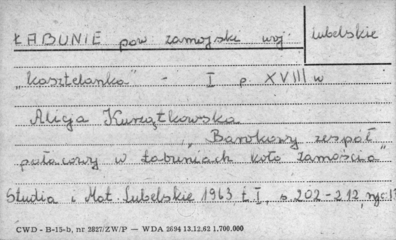 ŁABUNIE pow zamojski woj. lubelskie
"kasztelanka" - I p XVIII w
Alicja Kurzątkowska
"Barokowy zespół
pałacowy w Łabuniach koło Zamościa"
Studia i Mat. Lubelskie 1963 t. I, s. 202-212, ryc. 13
CWD - B-15-b, nr 2827/ZW/P — WDA 2694 13.12.62 1.700.000